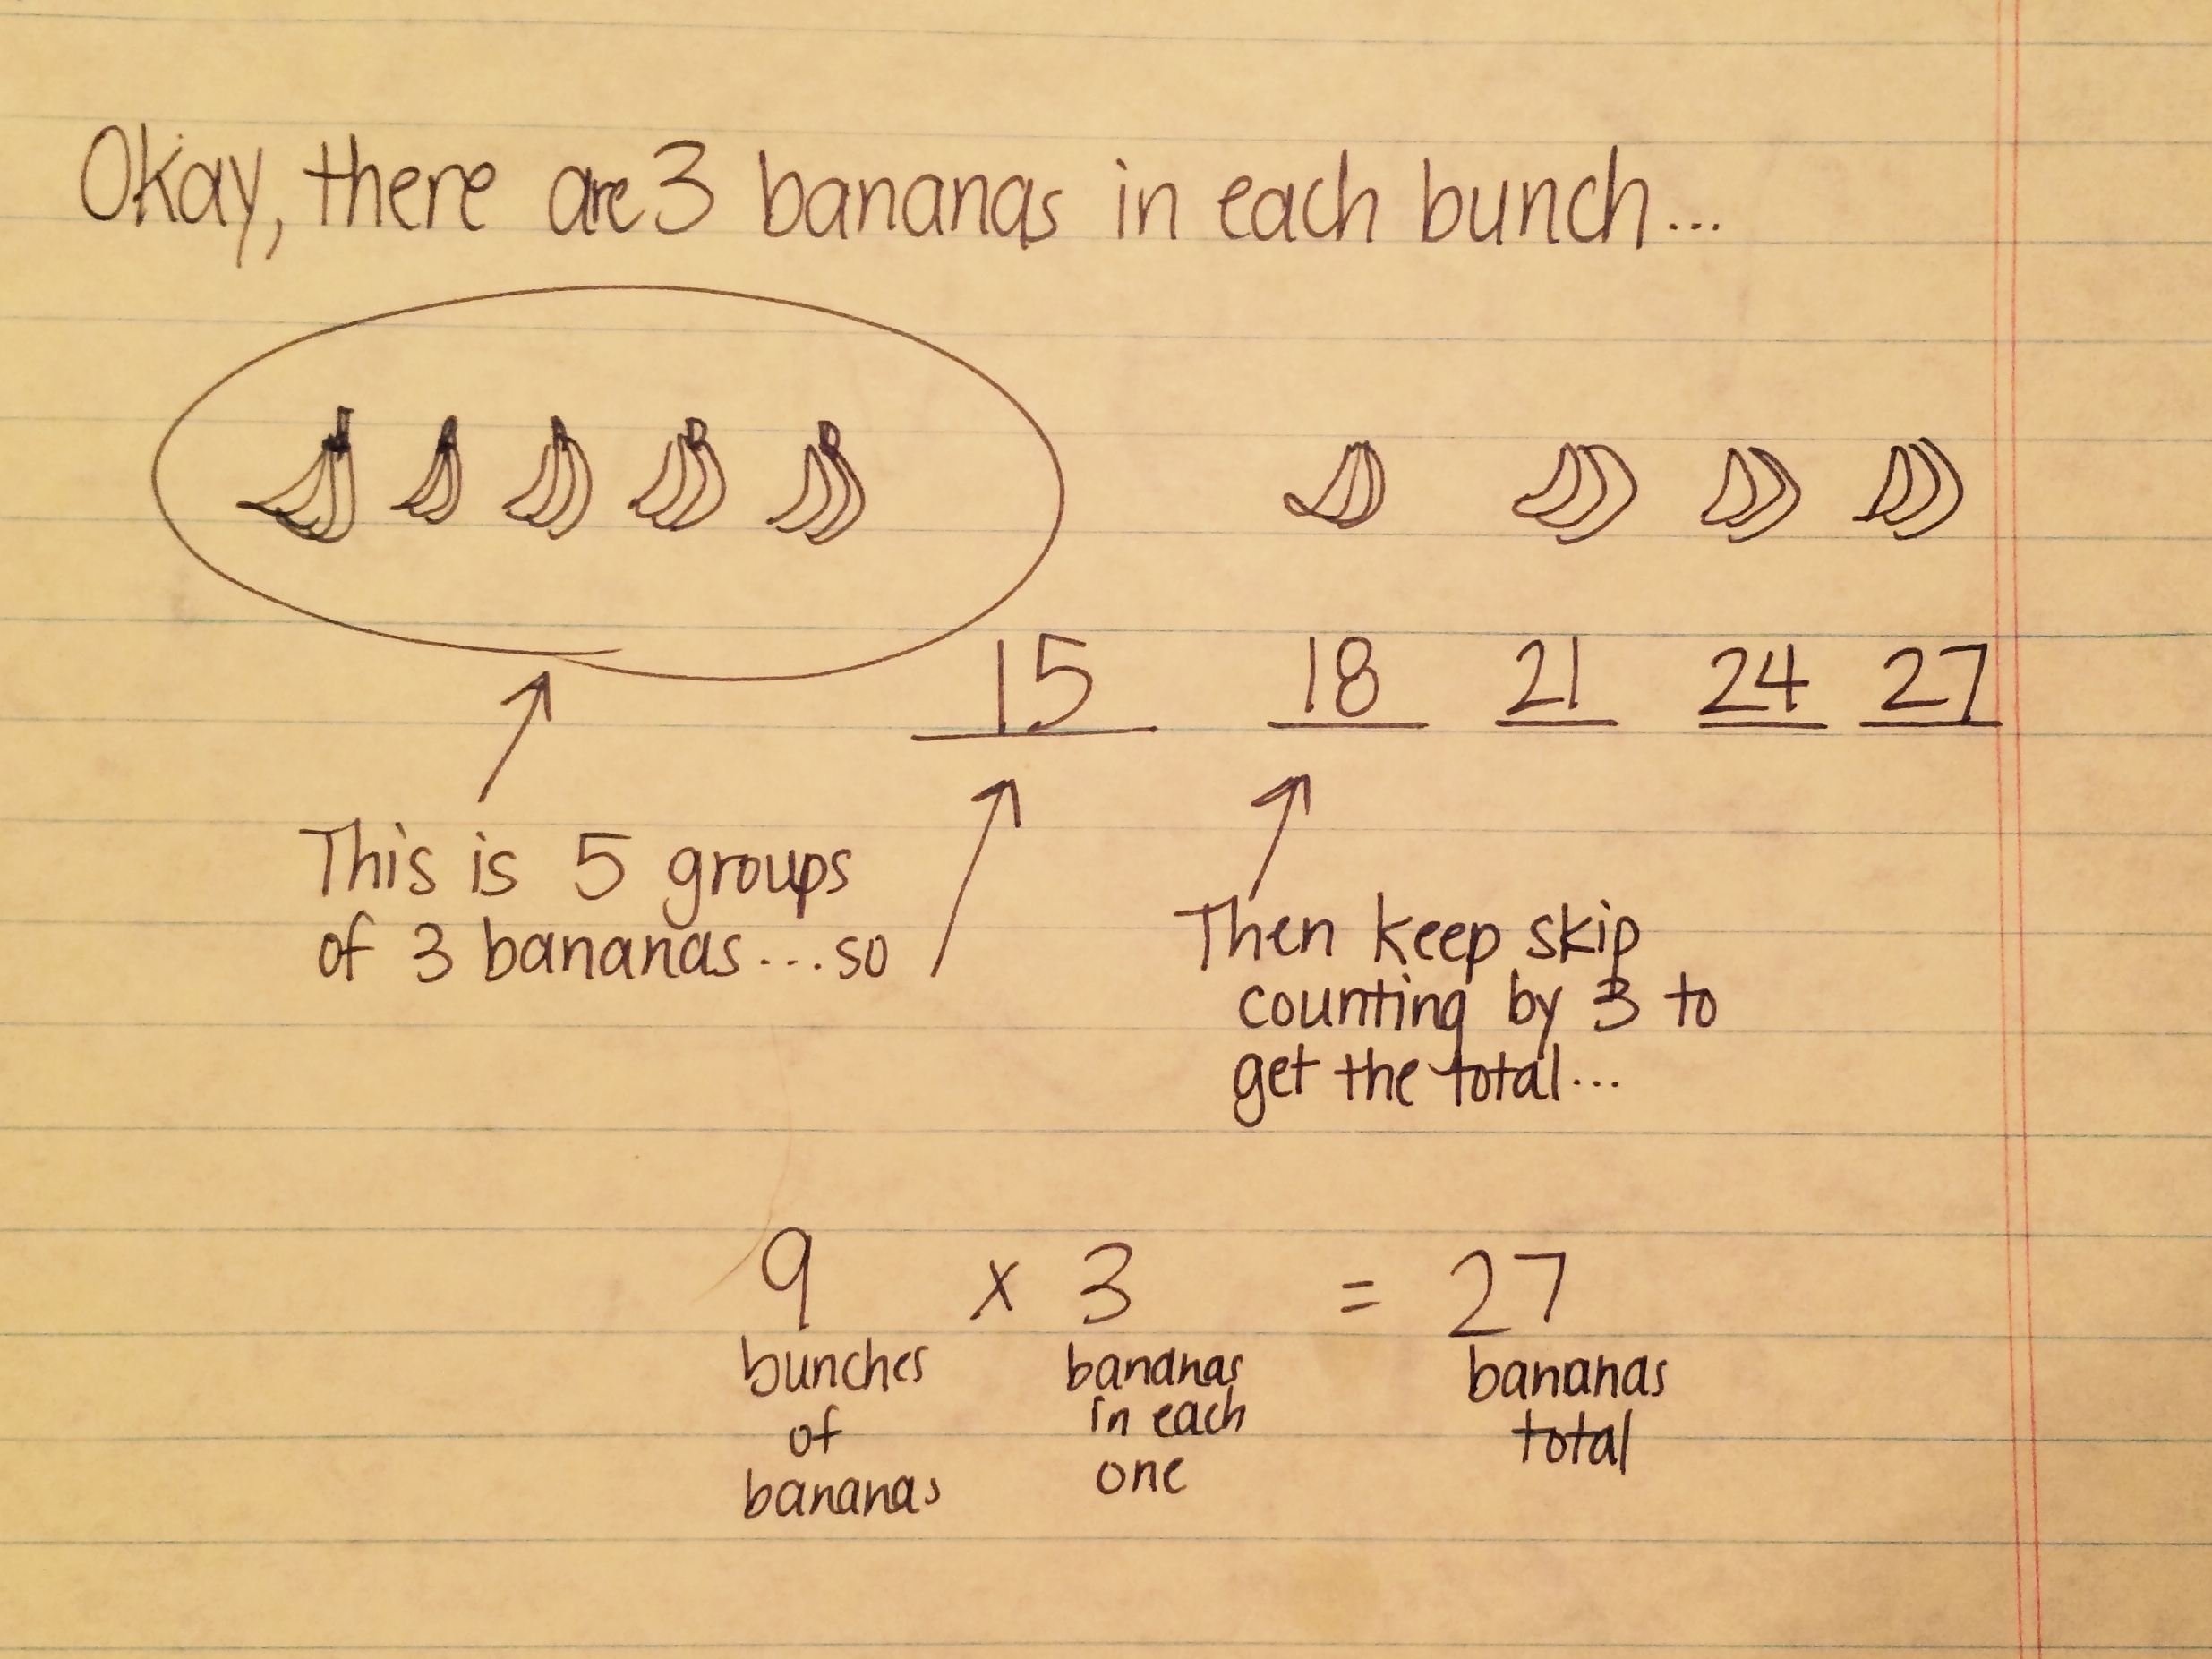 Okay, there are 3 bananas in each bunch...
15 18 21 24 27
This is 5 groups
of 3 bananas...so
Then keep skip
counting by 3 to
get the total...
9 x 3 = 27
bunches
of
bananas
bananas
in each
one
bananas
total